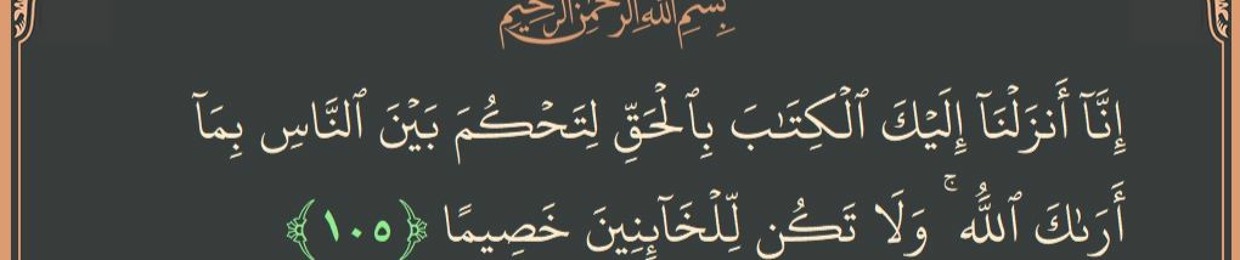 بِسْمِ اللَّهِ الرَّحْمَٰنِ الرَّحِيمِ
إِنَّآ أَنزَلْنَآ إِلَيْكَ ٱلْكِتَٰبَ بِٱلْحَقِّ لِتَحْكُمَ بَيْنَ ٱلنَّاسِ بِمَآ
أَرَىٰكَ ٱللَّهُ ۚ وَلَا تَكُن لِّلْخَآئِنِينَ خَصِيمًا ﴿١٠٥﴾